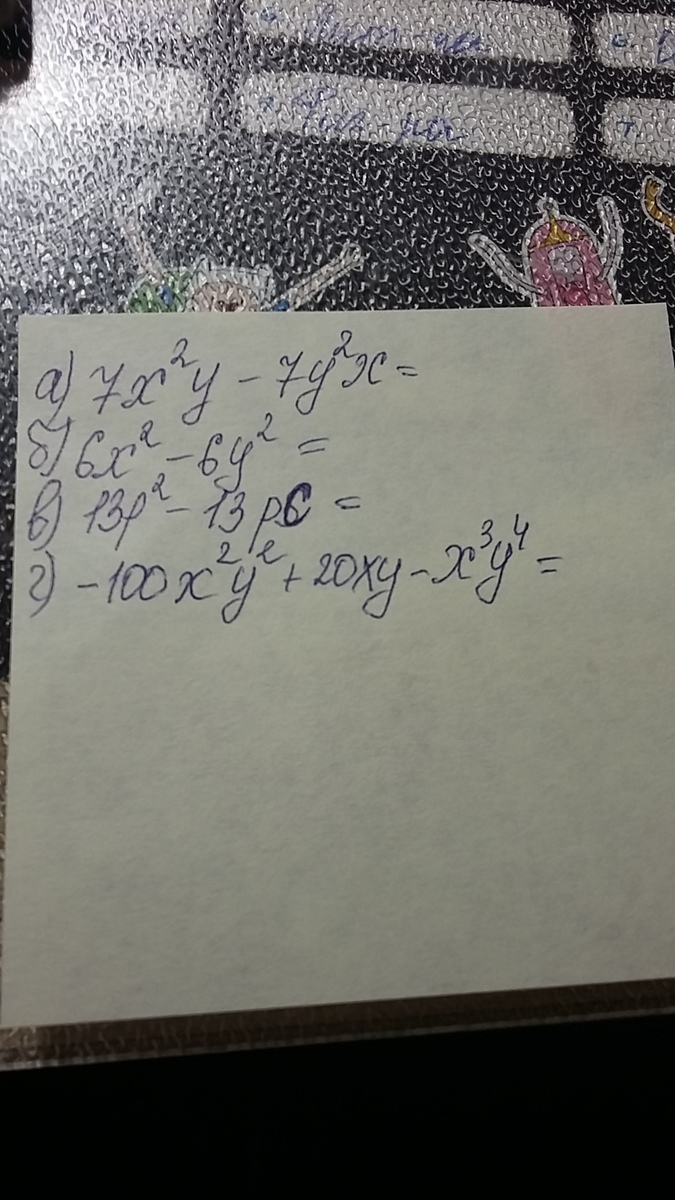 а) 7x²y - 7y²x =
б) 6x² - 6y² =
в) 13p² - 13pc =
г) -100x²y² + 20xy - x³y⁴ =